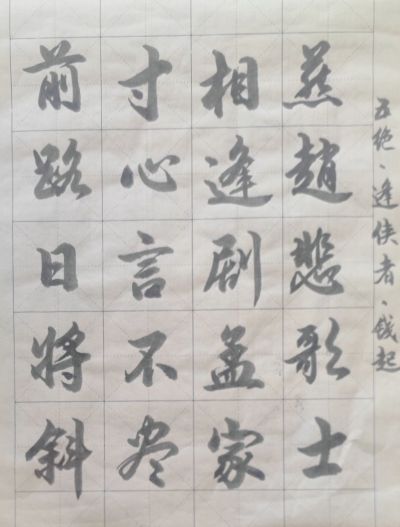 五绝、逢侠者、钱起
燕趙悲歌士
相逢劇孟家
寸心言不尽
前路日將斜